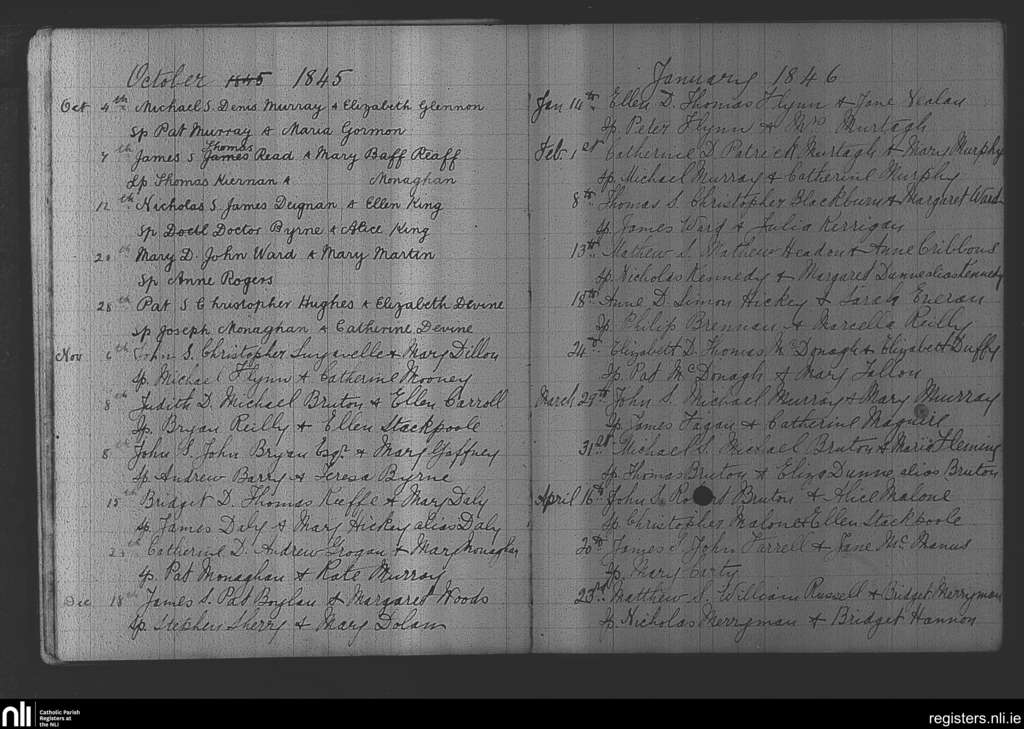 October 1845 1845
Oct 4th Michael S. Denis Murray & Elizabeth Glennon
Sp Pat Murray & Maria Gormon
7th James S Thomas James Read & Mary Baff Reaff
Sp Thomas Kiernan & Monaghan
12th Nicholas S. James Deignan & Ellen King
Sp Doctl Doctor Byrne & Alice King
20th Mary D. John Ward & Mary Martin
Sp Anne Rogers
28th Pat S Christopher Hughes & Elizabeth Devine
Sp Joseph Monaghan & Catherine Devine
Nov 6th John S. Christopher & Mary Dillon
Sp. Michael Flynn & Catherine Mooney
8th Judith D. Michael Bruton & Ellen Carroll
Sp. Bryan Reilly & Ellen Stackpoole
8th John S. John Bryan Esqr. & Mary Gaffney
Sp. Andrew Barry & Teresa Byrne
15th Bridget D. Thomas Keeffe & Mary Daly
Sp. James Daly & Mary Hickey alias Daly
Catherine D. Andrew Grogan & Mary Monaghan
Sp. Pat Monaghan & Kate Murray
Dec 18th James S. Pat Boylan & Margaret Woods
Sp. Stephen Sherry & Mary Dolan
January 1846
Jan 14th. Ellen D. Thomas Flynn & Jane Nealan
Sp. Peter Flynn & Mrs Murtagh
Feb. 1st Catherine D. Patrick Murtagh & Mary Murphy
Sp. Michael Murray & Catherine Murphy
8th Thomas S. Christopher Blackburn & Margaret Ward
Sp. James Ward & Julia Kerrigan
13th Mathew S. Mathew Headon & Anne Cribbons
Sp. Nicholas Kennedy & Margaret Dunne alias Kennedy
18th Anne D. Simon Hickey & Sarah Everan
Sp. Philip Brennan & Marcella Reilly
24th Elizabeth D. Thomas McDonagh & Elizabeth Duffy
Sp. Pat McDonagh & Mary Fallon
March John S. Michael Murray & Mary Murray
Sp. James Fagan & Catherine Maguire
31st Michael S. Michael Bruton & Maria Fleming
Sp Thomas Bruton & Eliza Dunne alias Bruton
April 16th John S. Robert Bruton & Alice Malone
Sp. Christopher Malone & Ellen Stackpoole
20th James S John Farrell & Jane McManus
Sp. Mary Carty
23rd Matthew S. William Russell & Bridget Merryman
Sp. Nicholas Merryman & Bridget Hannon
nli Catholic Parish
Registers at
the NLI
registers.nli.ie